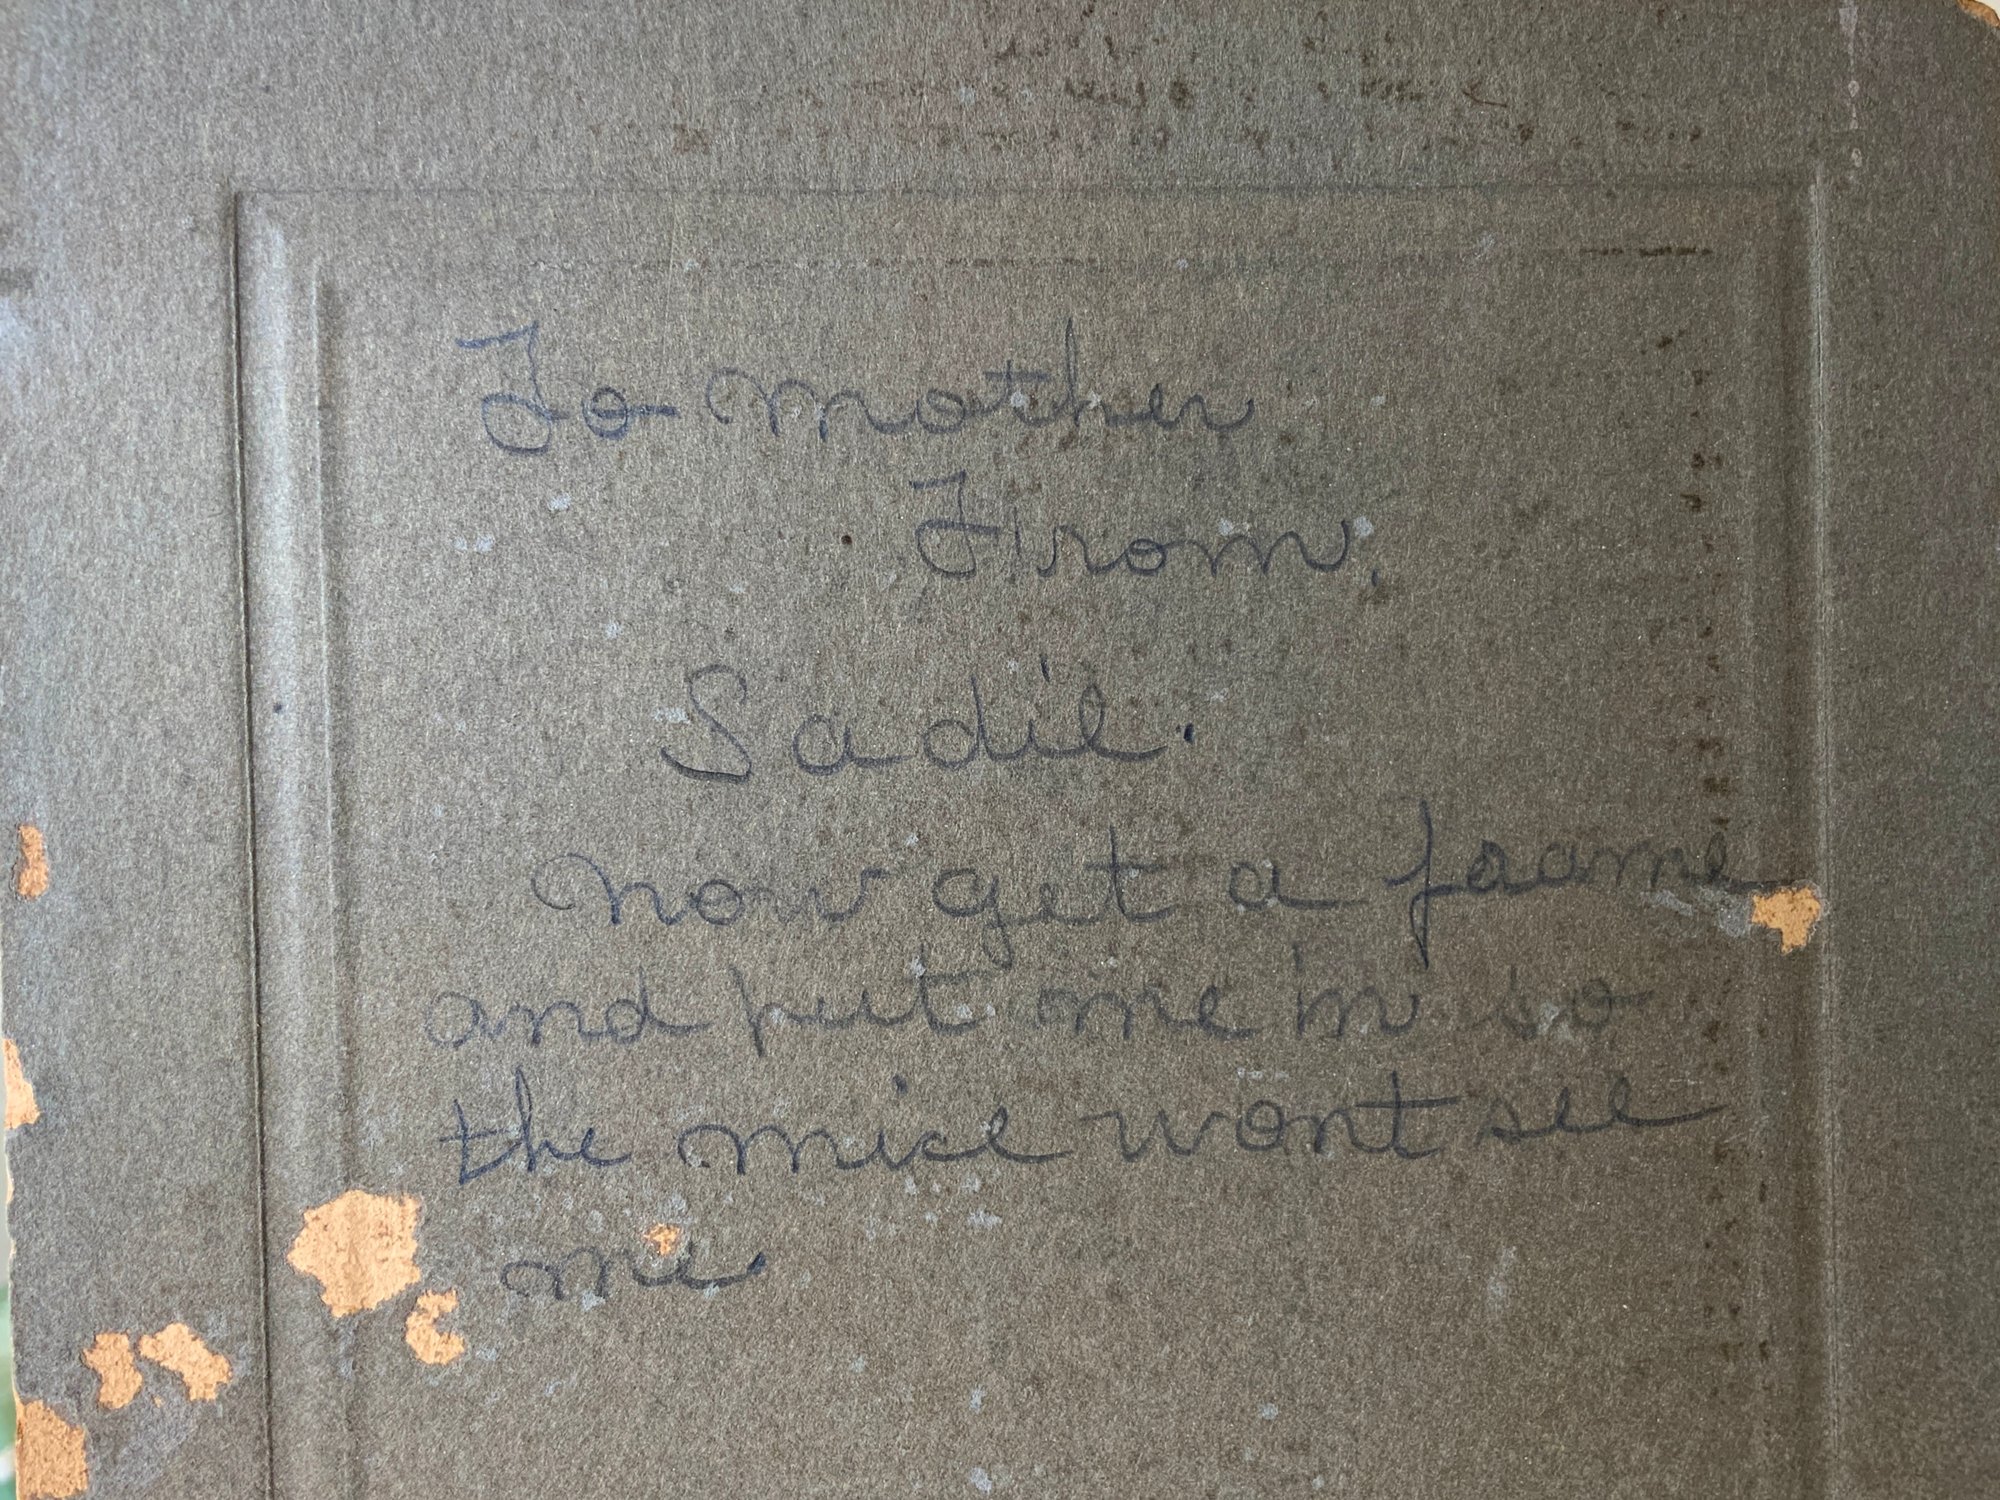 To mother
From,
Sadie.
now get a frame
and put me in so
the mice wont see
me.